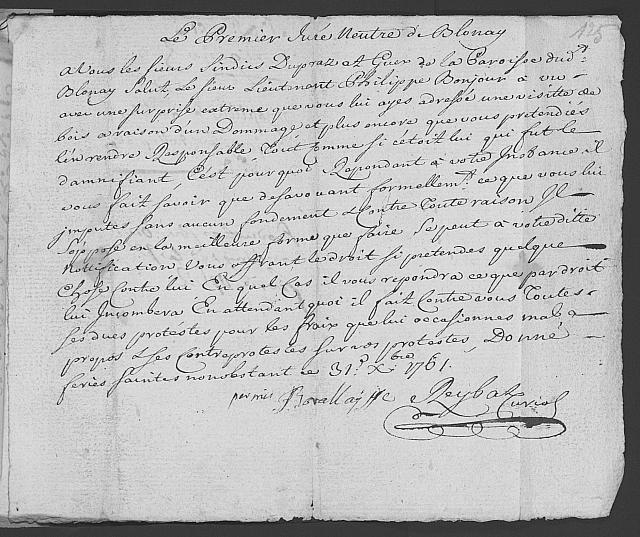 125
Le Premier Juré Neutre de Blonay
A Vous les sieurs Sindics Dupraz et Guex de la Paroisse dud.t
Blonay Salut, Le sieur Lieutenant Philippe Bonjour à vu
avec une surprise extreme que vous lui ayes adressé une visitte de
bois a raison d'un Dommage et plus encore que vous pretendiés
l'en rendre Responsable Tout comme si cetoit lui qui fut le
damnifiant C'est pourquoi Repondant à vôtre Instance il
vous fait savoir que desavouant formellem.t ce que vous lui
imputes sans aucun fondement & Contre toute raison Il
S'oppose en la meilleure forme que faire se peut à vôtre ditte
Nottification Vous offrant le droit si pretendes quelque
Chose Contre lui En quel Cas il vous repondra ce que par droit
lui Incombera En attendant quoi il fait Contre vous Toutes
ses dues protestes pour les fraix que lui occasionnes mal a
propos & ses Contreprotestes sur vos protestes, Donné
feries saintes nonobstant ce 31.e X.bre 1761.
par mis
Reybaz
Curial